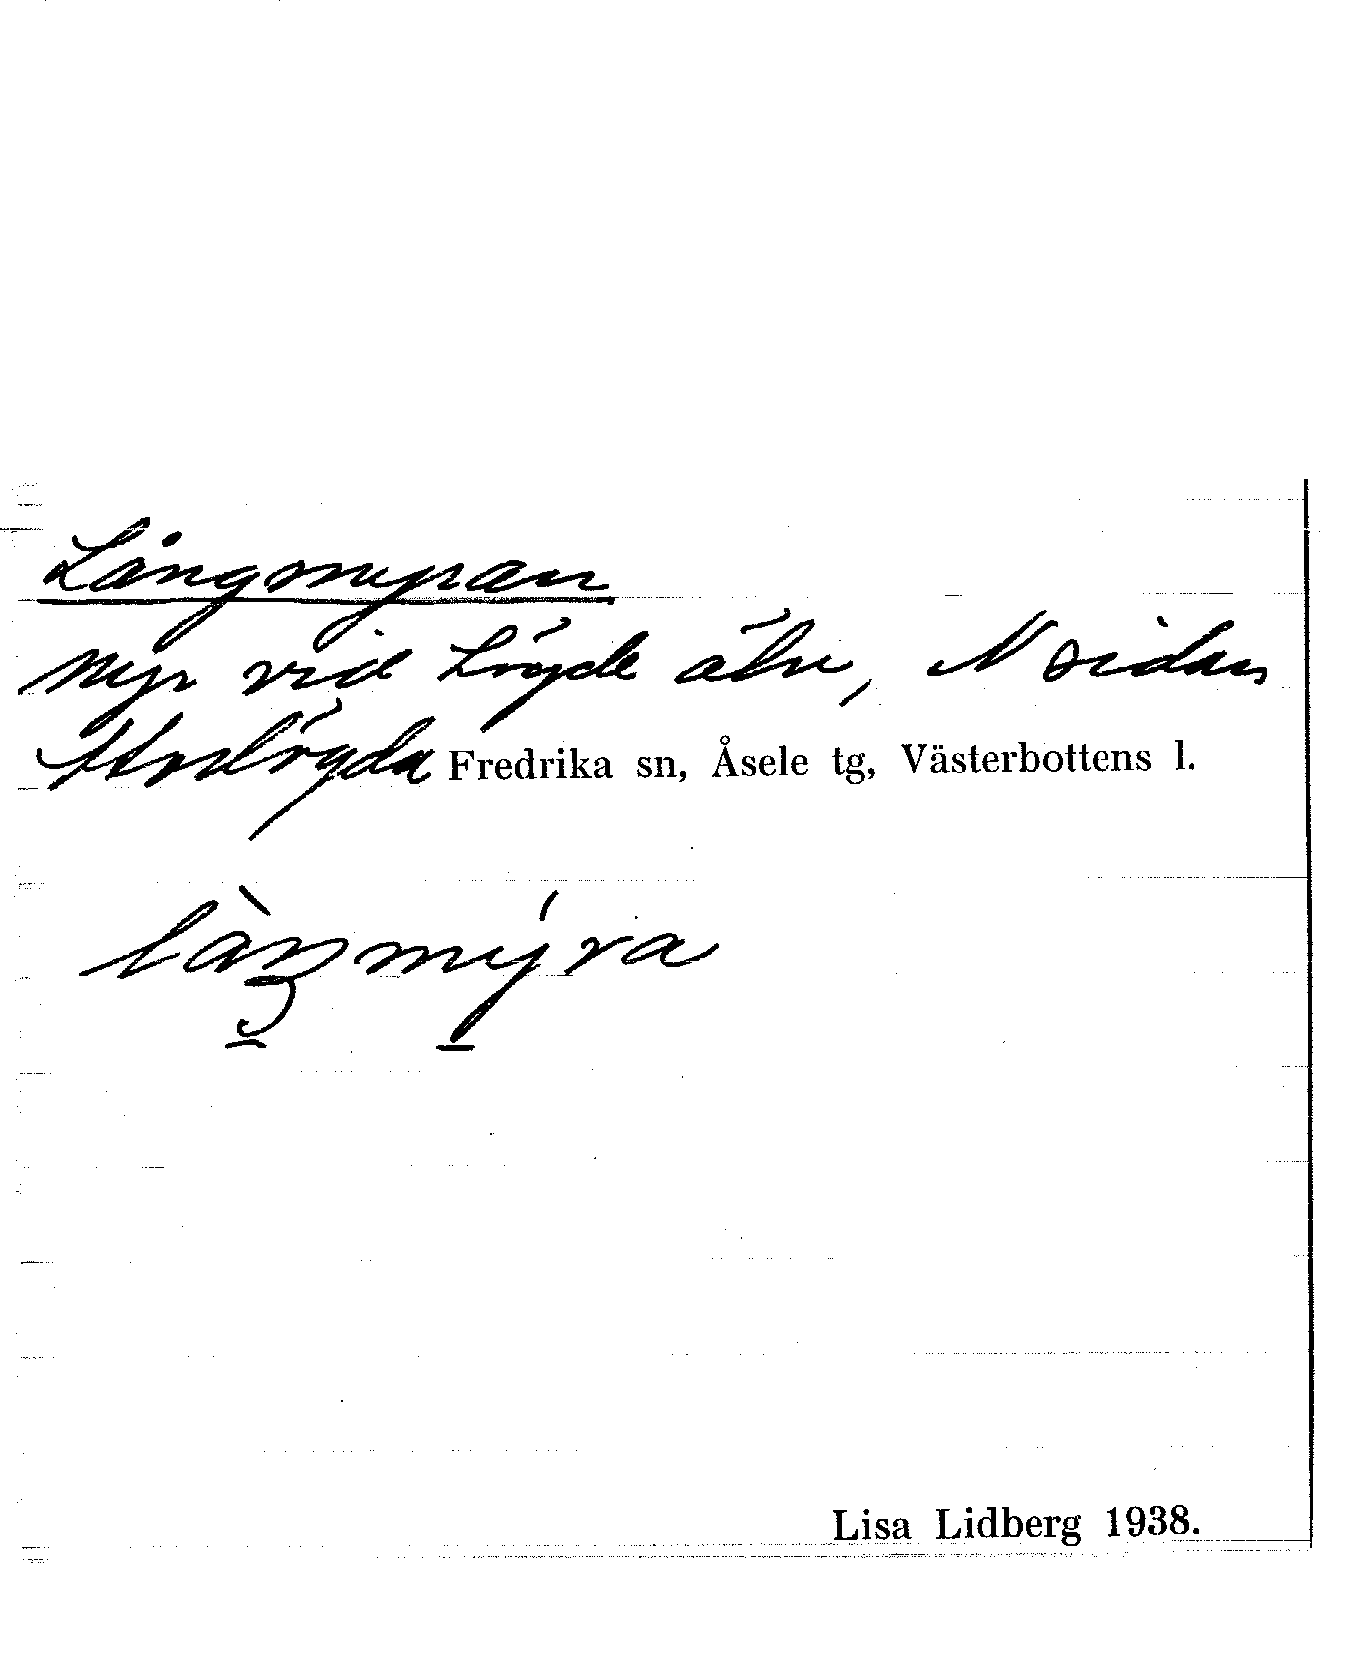 Långmyran
Myr vid Lögde älv, N sidan
Storlögda Fredrika sn, Åsele tg, Västerbottens l.
Lisa Lidberg 1938.